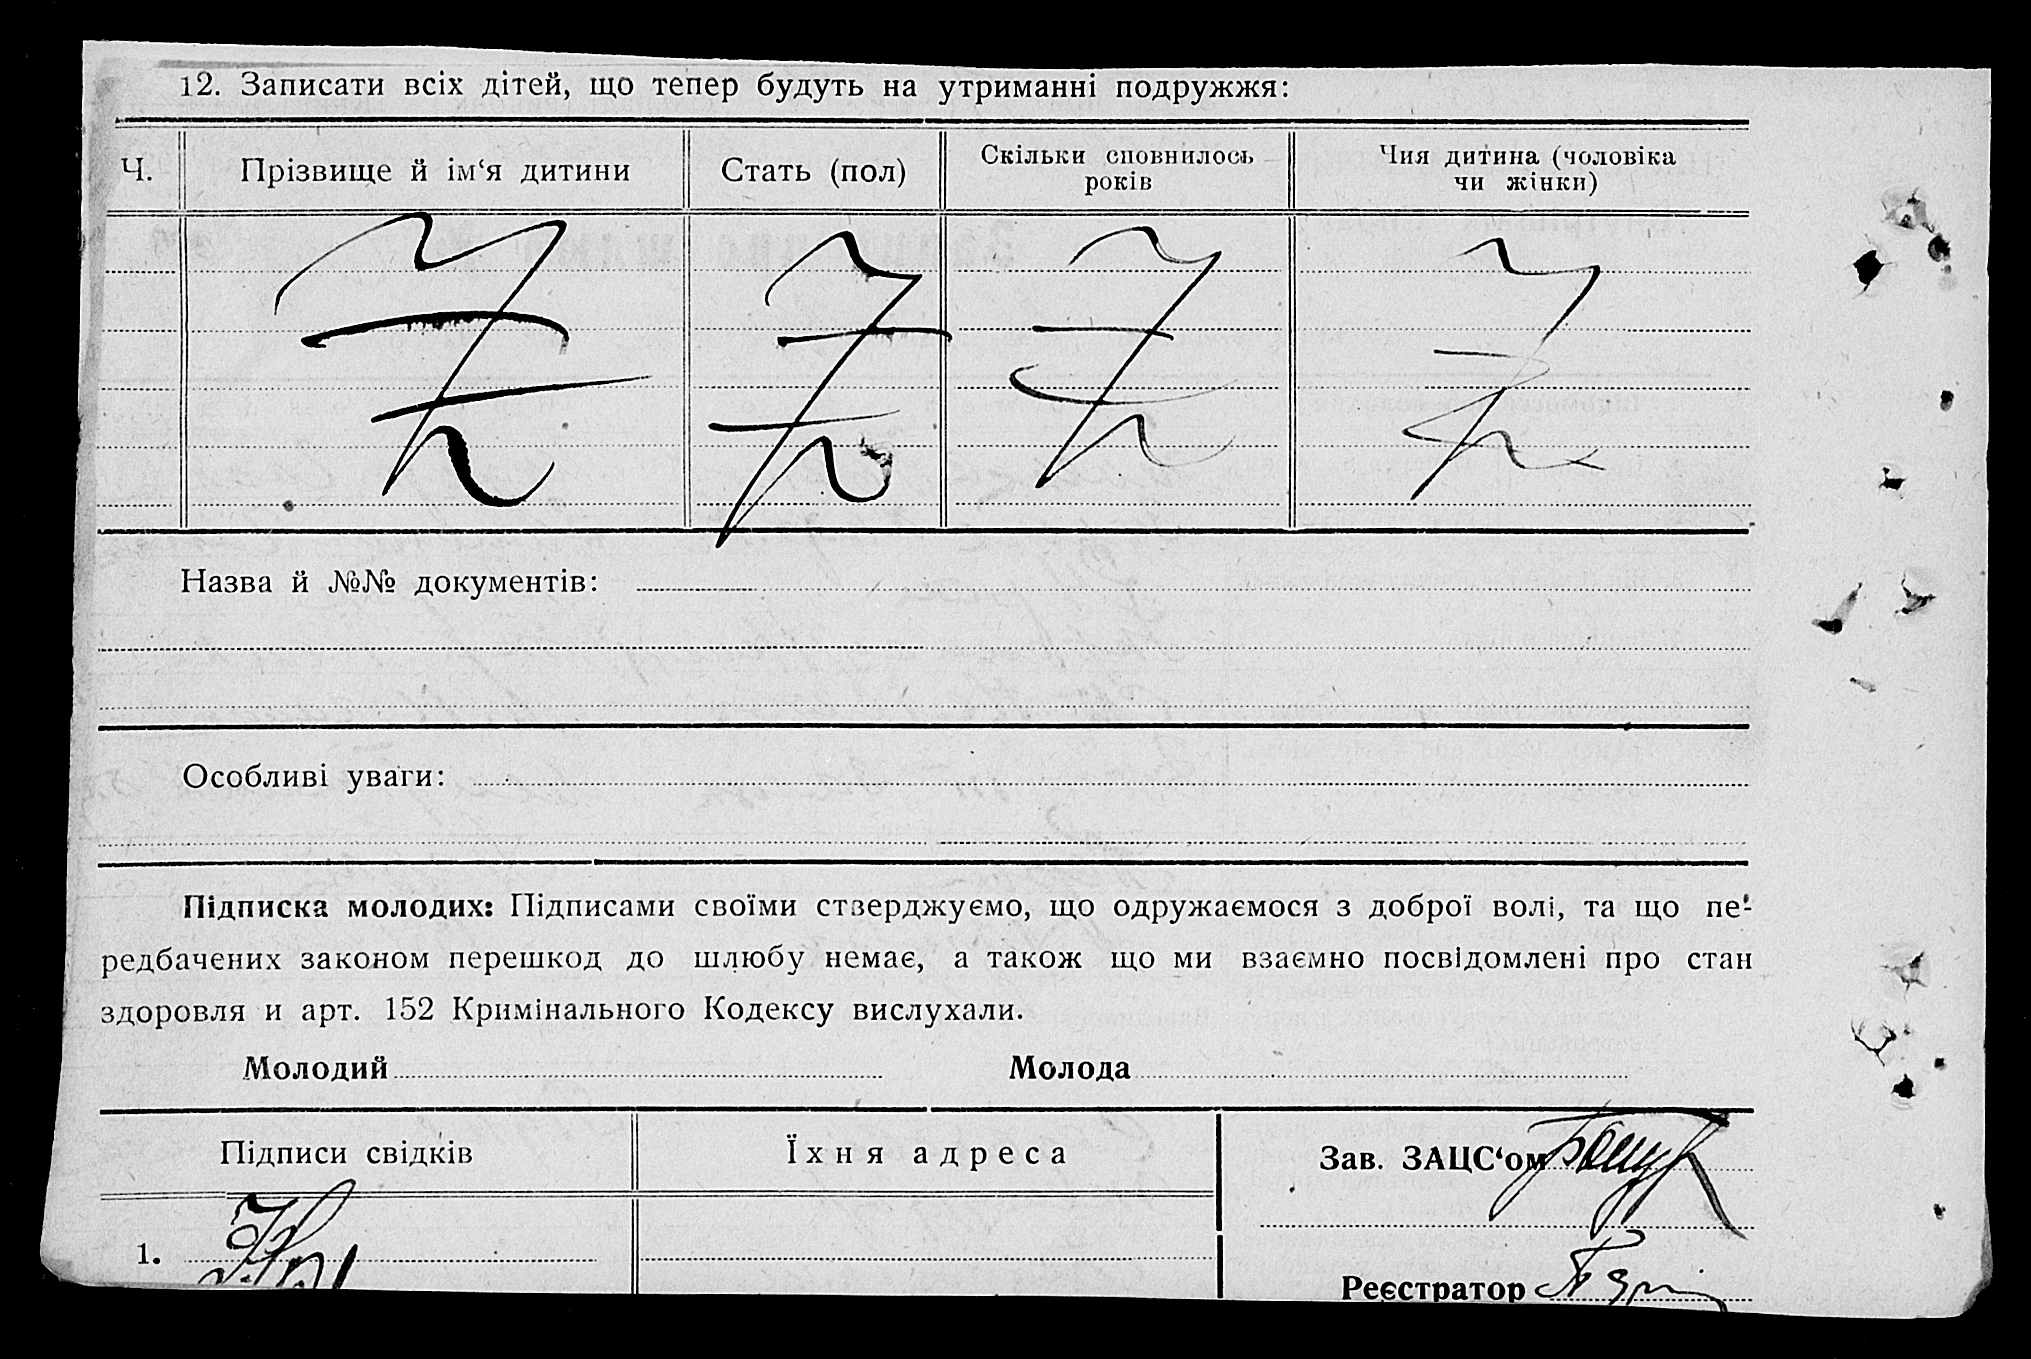 12. Записати всіх дітей, що тепер будуть на утриманні подружжя:
Ч.
Прізвище й ім‘я дитини
Стать (пол)
Скільки сповнилось
років
Чия дитина (чоловіка
чи жінки)
Назва й №№ документів:
Особливі уваги:
Підписка молодих: Підписами своїми стверджуємо, що одружаємося з доброї волі, та що пе-
редбачених законом перешкод до шлюбу немає, а також що ми взаємно посвідомлені про стан
здоровля и арт. 152 Кримінального Кодексу вислухали.
Молодий
Молода
Підписи свідків
Їхня адреса
Зав. ЗАЦС‘ом
1.
Реєстратор